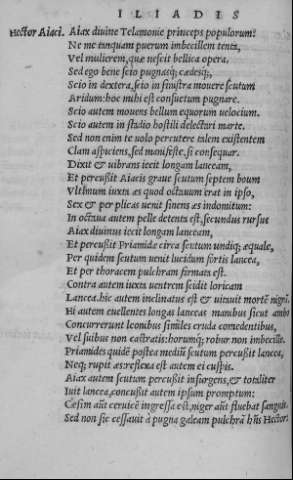 ILIADIS
Hector Aiaci. Aiax diuine Telamonie princeps populorum:
Ne me tanquam puerum imbecillem tenta,
Vel mulierem, quæ nescit bellica opera.
Sed ego bene scio pugnasq; cædesq;,
Scio in dextera, scio in sinistra mouere scutum
Aridum: hoc mihi est consuetum pugnare.
Scio autem mouens bellum equorum uelocium.
Scio autem in studio hostili delectari marte.
Sed non enim te uolo percutere talem existentem
Clam aspiciens, sed manifeste, si consequar.
Dixit & uibrans iecit longam lanceam,
Et percußit Aiacis graue scutum septem boum
Vltimum iuxta æs quod octauum erat in ipso,
Sex & per plicas uenit sinens æs indomitum:
In octaua autem pelle detenta est, secundus rursus
Aiax diuinus iecit longam lanceam,
Et percußit Priamidæ circa scutum undiq; æquale,
Per quidem scutum uenit lucidum fortis lancea,
Et per thoracem pulchram firmata est.
Contra autem iuxta uentrem scidit loricam
Lancea. hic autem inclinatus est & uitauit mortē nigrā.
Hi autem euellentes longas lanceas manibus sicut ambo
Concurrerunt leonibus similes cruda comedentibus,
Vel suibus non castratis: horumq; robur non imbecille.
Priamides quidē postea mediū scutum percußit lancea,
Neq; rupit æs: reflexa est autem ei cuspis.
Aiax autem scutum percußit insurgens, & totaliter
Iuit lancea, concussit autem ipsum promptum:
Cæsim aūt ceruicē ingressa est, niger aūt fluebat sanguis.
Sed non sic cessauit à pugna galeam pulchrā hñs Hector.